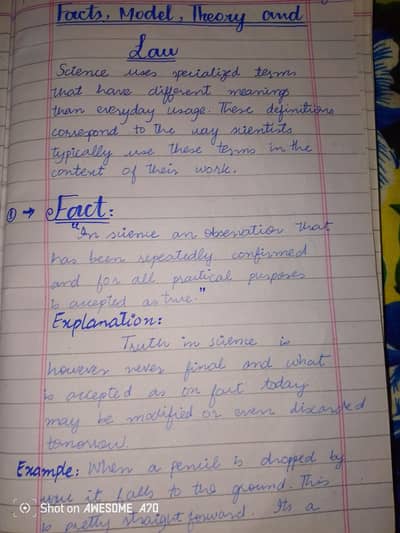 Facts, Model, Theory and
Law
Science uses specialized terms
that have different meanings
than everyday usage. These definitions
correspond to the way scientists
typically use these terms in the
context of their work.
① → Fact:
"In science an observation that
has been repeatedly confirmed
and for all practical purposes
is accepted as true."
Explanation:
Truth in science is
however never final and what
is accepted as on fact today
may be modified or even discarded
tomorrow.
Example: When a pencil is dropped by
it falls to the ground. This
is pretty straight forward. Its a
Shot on AWESOME A70